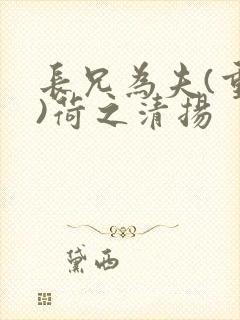 長兄為夫(重
)荷之清揚
黛西